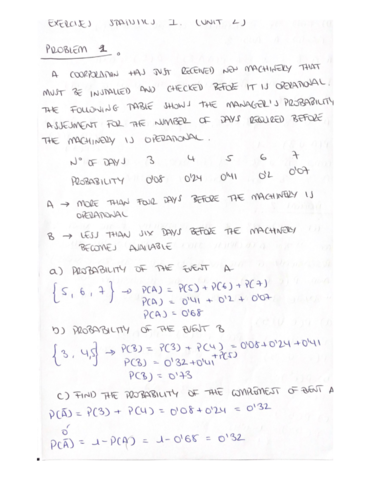 EXERCISES STATISTICS I. (UNIT 2)
PROBLEM 1.
A CORPORATION HAS JUST RECEIVED NEW MACHINERY THAT
MUST BE INSTALLED AND CHECKED BEFORE IT IS OPERATIONAL.
THE FOLLOWING TABLE SHOWS THE MANAGER'S PROBABILITY
ASSESSMENT FOR THE NUMBER OF DAYS REQUIRED BEFORE
THE MACHINERY IS OPERATIONAL.
Nº OF DAYS 3 4 5 6 7
PROBABILITY 0'08 0'24 0'41 0'2 0'07
A → MORE THAN FOUR DAYS BEFORE THE MACHINERY IS
OPERATIONAL
B → LESS THAN SIX DAYS BEFORE THE MACHINERY
BECOMES AVAILABLE
a) PROBABILITY OF THE EVENT A.
{5, 6, 7} → P(A) = P(5) + P(6) + P(7)
P(A) = 0'41 + 0'2 + 0'07
P(A) = 0'68
b) PROBABILITY OF THE EVENT B
{3, 4, 5} → P(B) = P(3) + P(4) + P(5) = 0'08 + 0'24 + 0'41
P(B) = 0'32 + 0'41
P(B) = 0'73
c) FIND THE PROBABILITY OF THE COMPLEMENT OF EVENT A
P(Ā) = P(3) + P(4) = 0'08 + 0'24 = 0'32
ó
P(Ā) = 1 - P(A) = 1 - 0'68 = 0'32